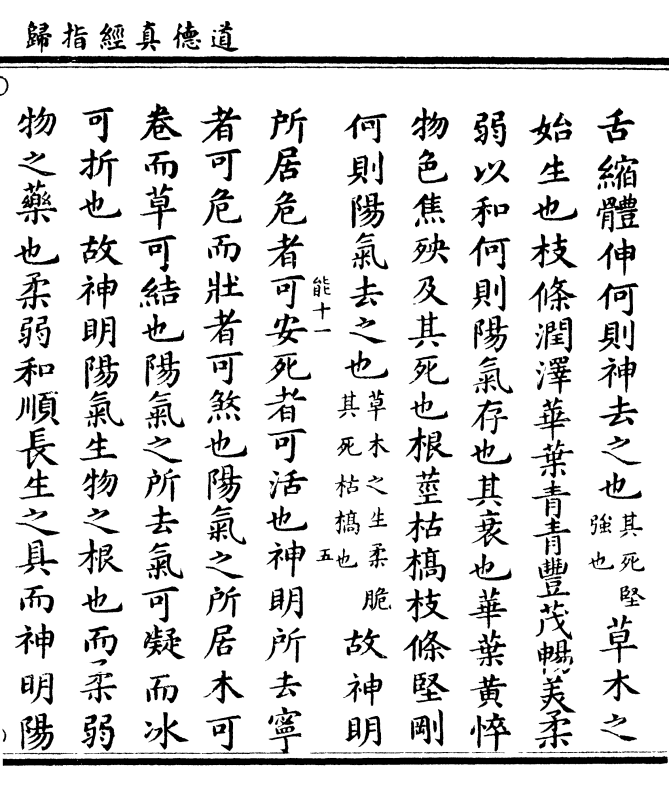 道德真經指歸
舌縮體伸何則神去之也其死堅強也草木之
始生也枝條潤澤華葉青青豐茂暢美柔
弱以和何則陽氣存也其衰也華葉黃悴
物色焦殃及其死也根莖枯槁枝條堅剛
何則陽氣去之也草木之生柔脆其死枯槁也故神明
能十一 五
所居危者可安死者可活也神明所去寧
者可危而壯者可煞也陽氣之所居木可
卷而草可結也陽氣之所去氣可凝而冰
可折也故神明陽氣生物之根也而柔弱
物之藥也柔弱和順長生之具而神明陽